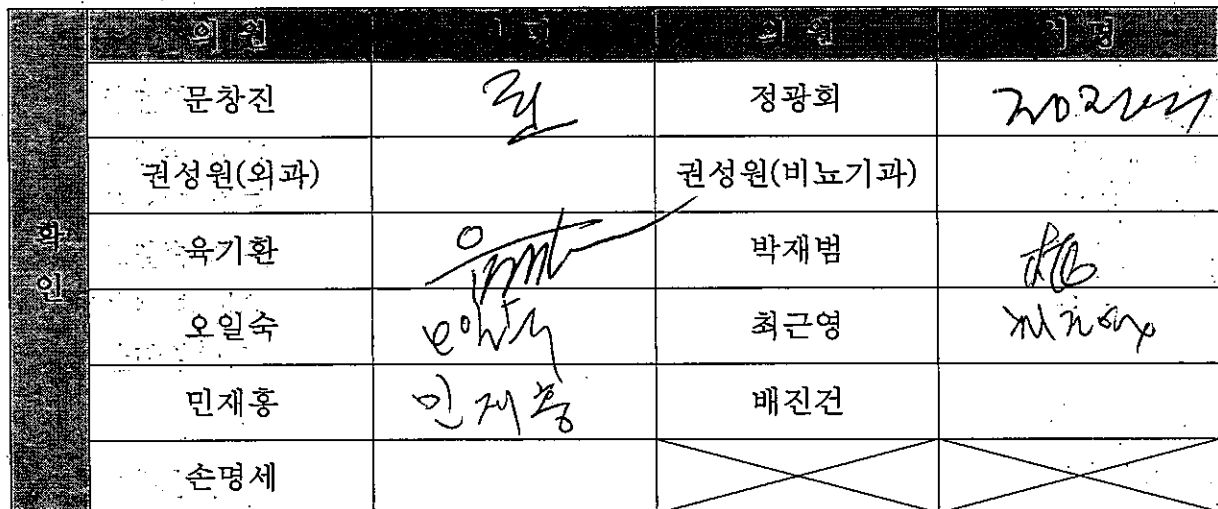 위원 서명 위원 서명
문창진 정광회
권성원(외과) 권성원(비뇨기과)
확인
육기환 박재범
오일숙 오일숙 최근영 최근영
민재홍 민재홍 배진건
손명세